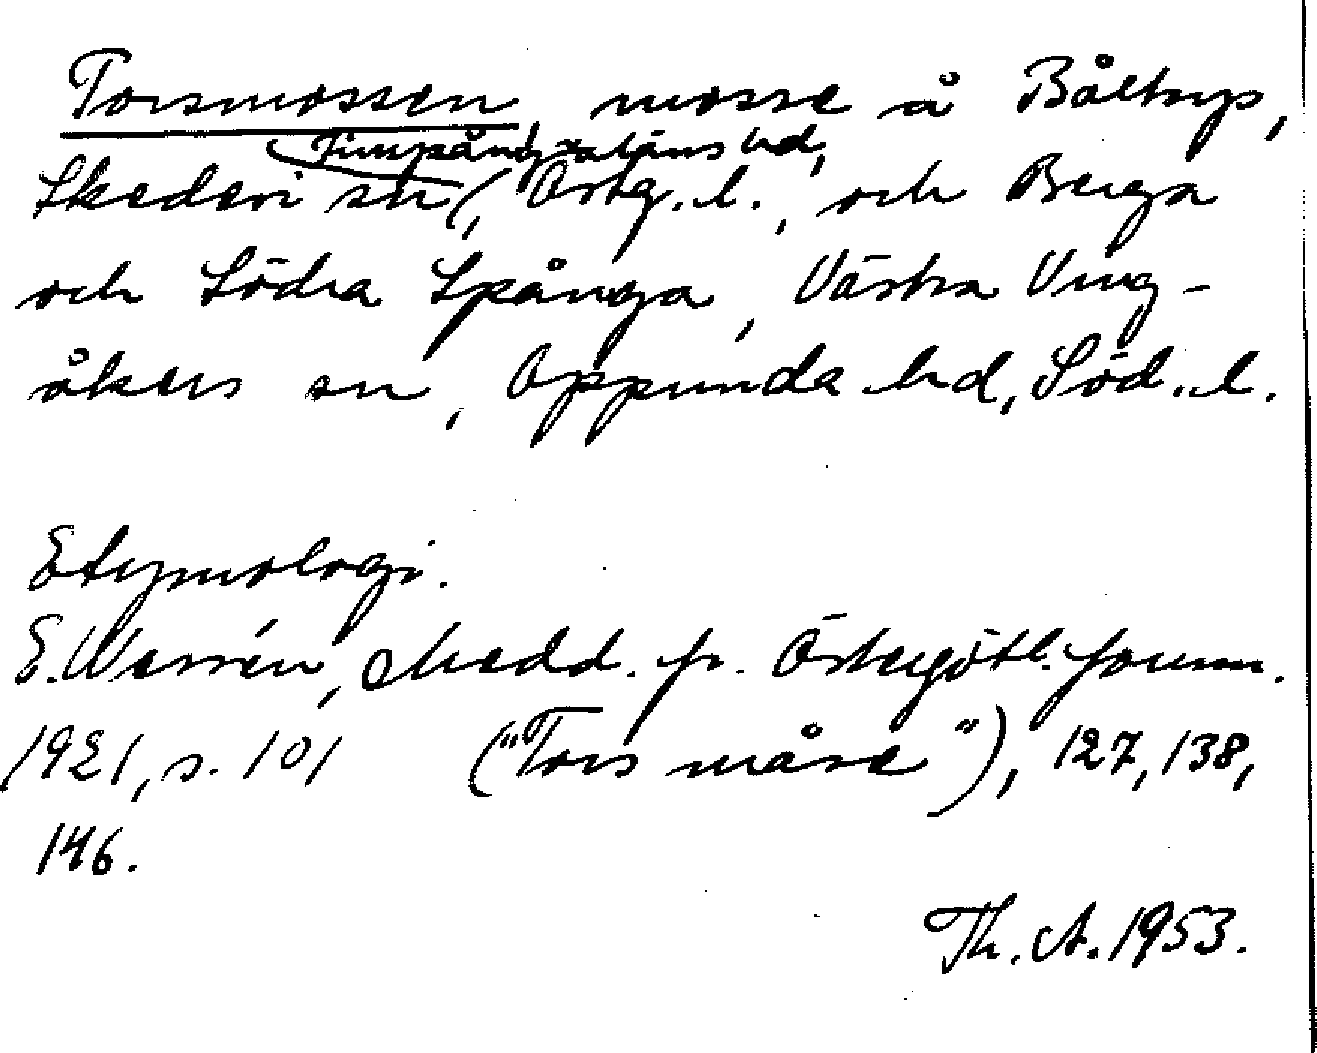 Torsmossen, mosse å Båltorp,
Finspånga läns hd,
Skedevi sn, Östg. l., och Berga
och Södra Spånga, Västra Ving-
åkers sn, Oppunda hd, Söd. l.
Etymologi.
E. Wessén, Medd. fr. Östergötl. fornm.
1921, s. 101 ("Tors måse"), 127, 138,
146.
Th. A. 1953.